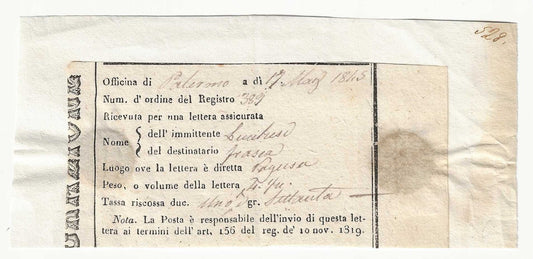 528.
Officina di Palermo a dì 17 Mag 1845
Num. d'ordine del Registro 389
Ricevuta per una lettera assicurata
Nome { dell' immittente Lucchesi
del destinatario
Luogo ove la lettera è diretta Ragusa
Peso, o volume della lettera
Tassa riscossa duc. Uno gr. Settanta
Nota. La Posta è responsabile dell'invio di questa let-
tera ai termini dell' art. 156 del reg. de' 10 nov. 1819.